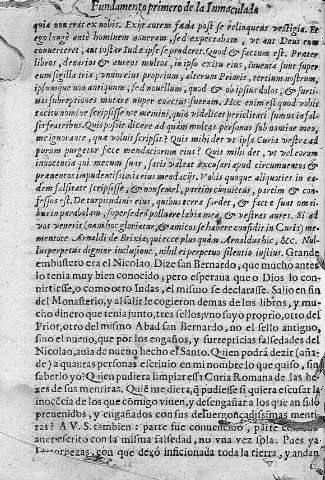 Fundamento primero de la Inmaculada
quia non erat ex nobis. Exijt autem fœda post se relinquens vestigia. Et
ego longè ante hominem noueram, sed expectabam, vt aut Deus eum
conuerteret, aut instar Iudæ ipse se proderet. Quod & factum est. Præter
libros, denarios & aureos multos, in ipso exitu eius, inuenta sunt super
eum sigilla tria; vnum eius proprium, alterum Prioris, tertium nostrum,
ipsumque non antiquum, sed nouellum, quod & ob ipsius dolos, & furti-
uas subreptiones mutare nuper coactus fueram. Hoc enim est quod vobis
tacito nomine scripsisse me memini, quia videlicet periclitati sumus in fal-
sis fratribus. Quis possit dicere ad quàm multas personas sub nomine meo,
me ignorante, quæ voluit scripsit? Quis mihi det vt ipsa Curia vestra ad
purum purgetur fæce mendatiorum eius? Quis mihi det, vt vel eorum
innocentia qui mecum sunt, satis valeat excusari apud circumuentos &
præuentos impudentissimis eius mendacijs. Vobis quoque aliquoties in ea-
dem falsitate scripsisse, & non semel, partim conuictus, partim con-
fessus est. De turpitudinis eius, quibus terra sordet, & factæ sunt omni-
bus in parabolam, supersedeo polluere labia mea & vestras aures. Si ad
vos venerit (nam hoc gloriatur, & amicos se habere confidit in Curia) me-
mentote Arnaldi de Brixia, quia ecce plus quàm Arnaldus hic, &c. Nul-
lus perpetuo dignior inclusione, nihil ei perpetuo silentio iustius. Grande
embustero era el Nicolao. Dize san Bernardo, que mucho antes
lo tenia muy bien conocido, pero esperaua que o Dios lo con-
uirtiesse, o como otro Iudas, el mismo se declarasse. Salio en fin
del Monasterio, y al salir le cogieron demas de los libros, y mu-
cho dinero que tenia junto, tres sellos, vno suyo proprio, otro del
Prior, otro del mismo Abad san Bernardo, no el sello antigno,
sino el nueuo, que por los engaños, y surrepticias falsedades del
Nicolao, auia de nueuo hecho el Santo. Quien podrà dezir (aña-
de) a quantas personas escriuio en mi nombre lo que quiso, sin
saberlo yo? Quien pudiera limpiar essa Curia Romana de las he-
zes de sus mentiras. Quiē me diera, q̃ pudiesse si quiera escusar la
inocēcia de los que cōmigo viuen, y desengañar a los que an sido
preuenidos, y engañados con sus desuergonçadissimas menti-
ras? A V. S. tambien: parte fue conuencido, parte confesso
auer escrito con la misma falsedad, no vna vez sola. Pues ya
las torpezas, con que dexò inficionada toda la tierra, y andan